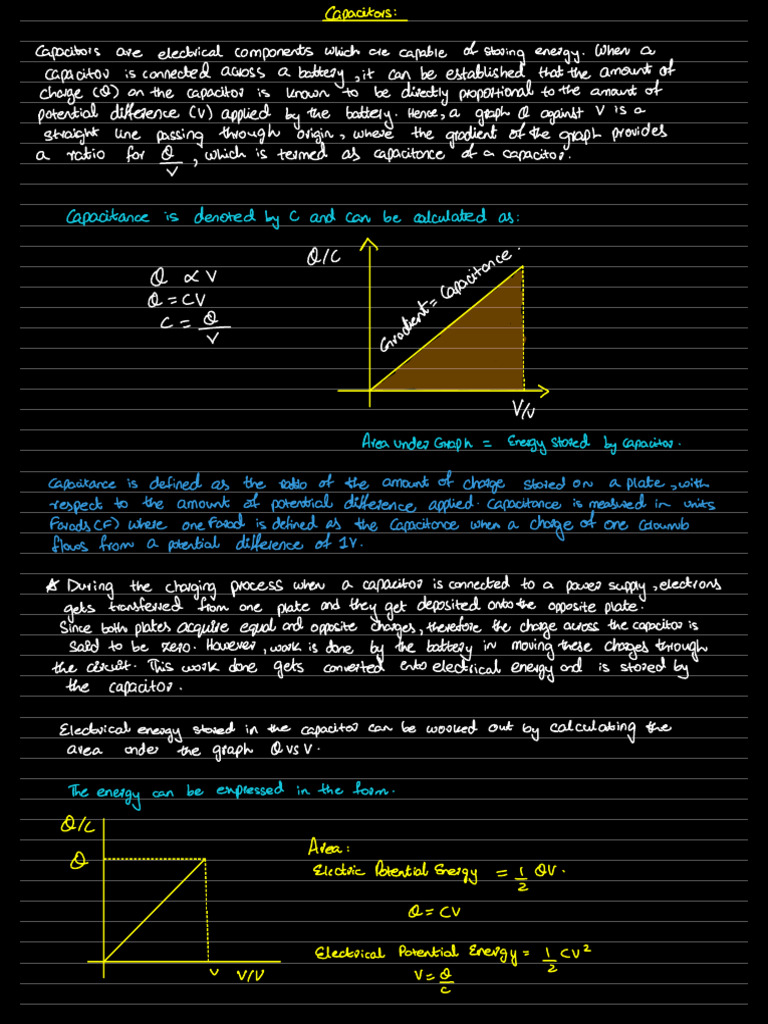 Capacitors:
Capacitors are electrical components which are capable of storing energy. When a
capacitor is connected across a battery, it can be established that the amount of
charge (Q) on the capacitor is known to be directly proportional to the amount of
potential difference (V) applied by the battery. Hence, a graph Q against V is a
straight line passing through origin, where the gradient of the graph provides
a ratio for Q/V, which is termed as capacitance of a capacitor.
Capacitance is denoted by C and can be calculated as:
Q ∝ V
Q = CV
C = Q/V
Q/C
Gradient = Capacitance.
V/V
Area under Graph = Energy stored by capacitor.
Capacitance is defined as the ratio of the amount of charge stored on a plate, with
respect to the amount of potential difference applied. Capacitance is measured in units
Farads (F) where one Farad is defined as the capacitance when a charge of one Coloumb
flows from a potential difference of 1V.
* During the charging process when a capacitor is connected to a power supply, electrons
gets transferred from one plate and they get deposited onto the opposite plate.
Since both plates acquire equal and opposite charges, therefore the charge across the capacitor is
said to be zero. However, work is done by the battery in moving these charges through
the circuit. This work done gets converted into electrical energy and is stored by
the capacitor.
Electrical energy stored in the capacitor can be worked out by calculating the
area under the graph Q vs V.
The energy can be expressed in the form.
Q/C
Q
V
V/V
Area:
Electric Potential Energy = 1/2 QV.
Q = CV
Electrical Potential Energy = 1/2 CV²
V = Q/C